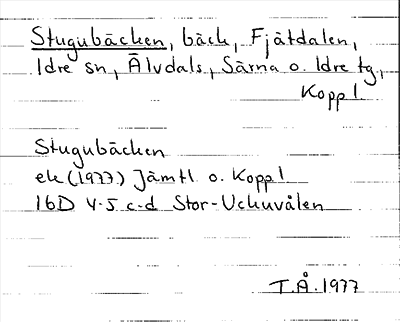 Stugubäcken, bäck, Fjätdalen,
Idre sn, Älvdals, Särna o. Idre tg,
Koppl.
Stugubäcken
ek (1977) Jämtl o. Koppl
16D 4-5 c-d Stor-Uckuvålen
T.Å. 1977